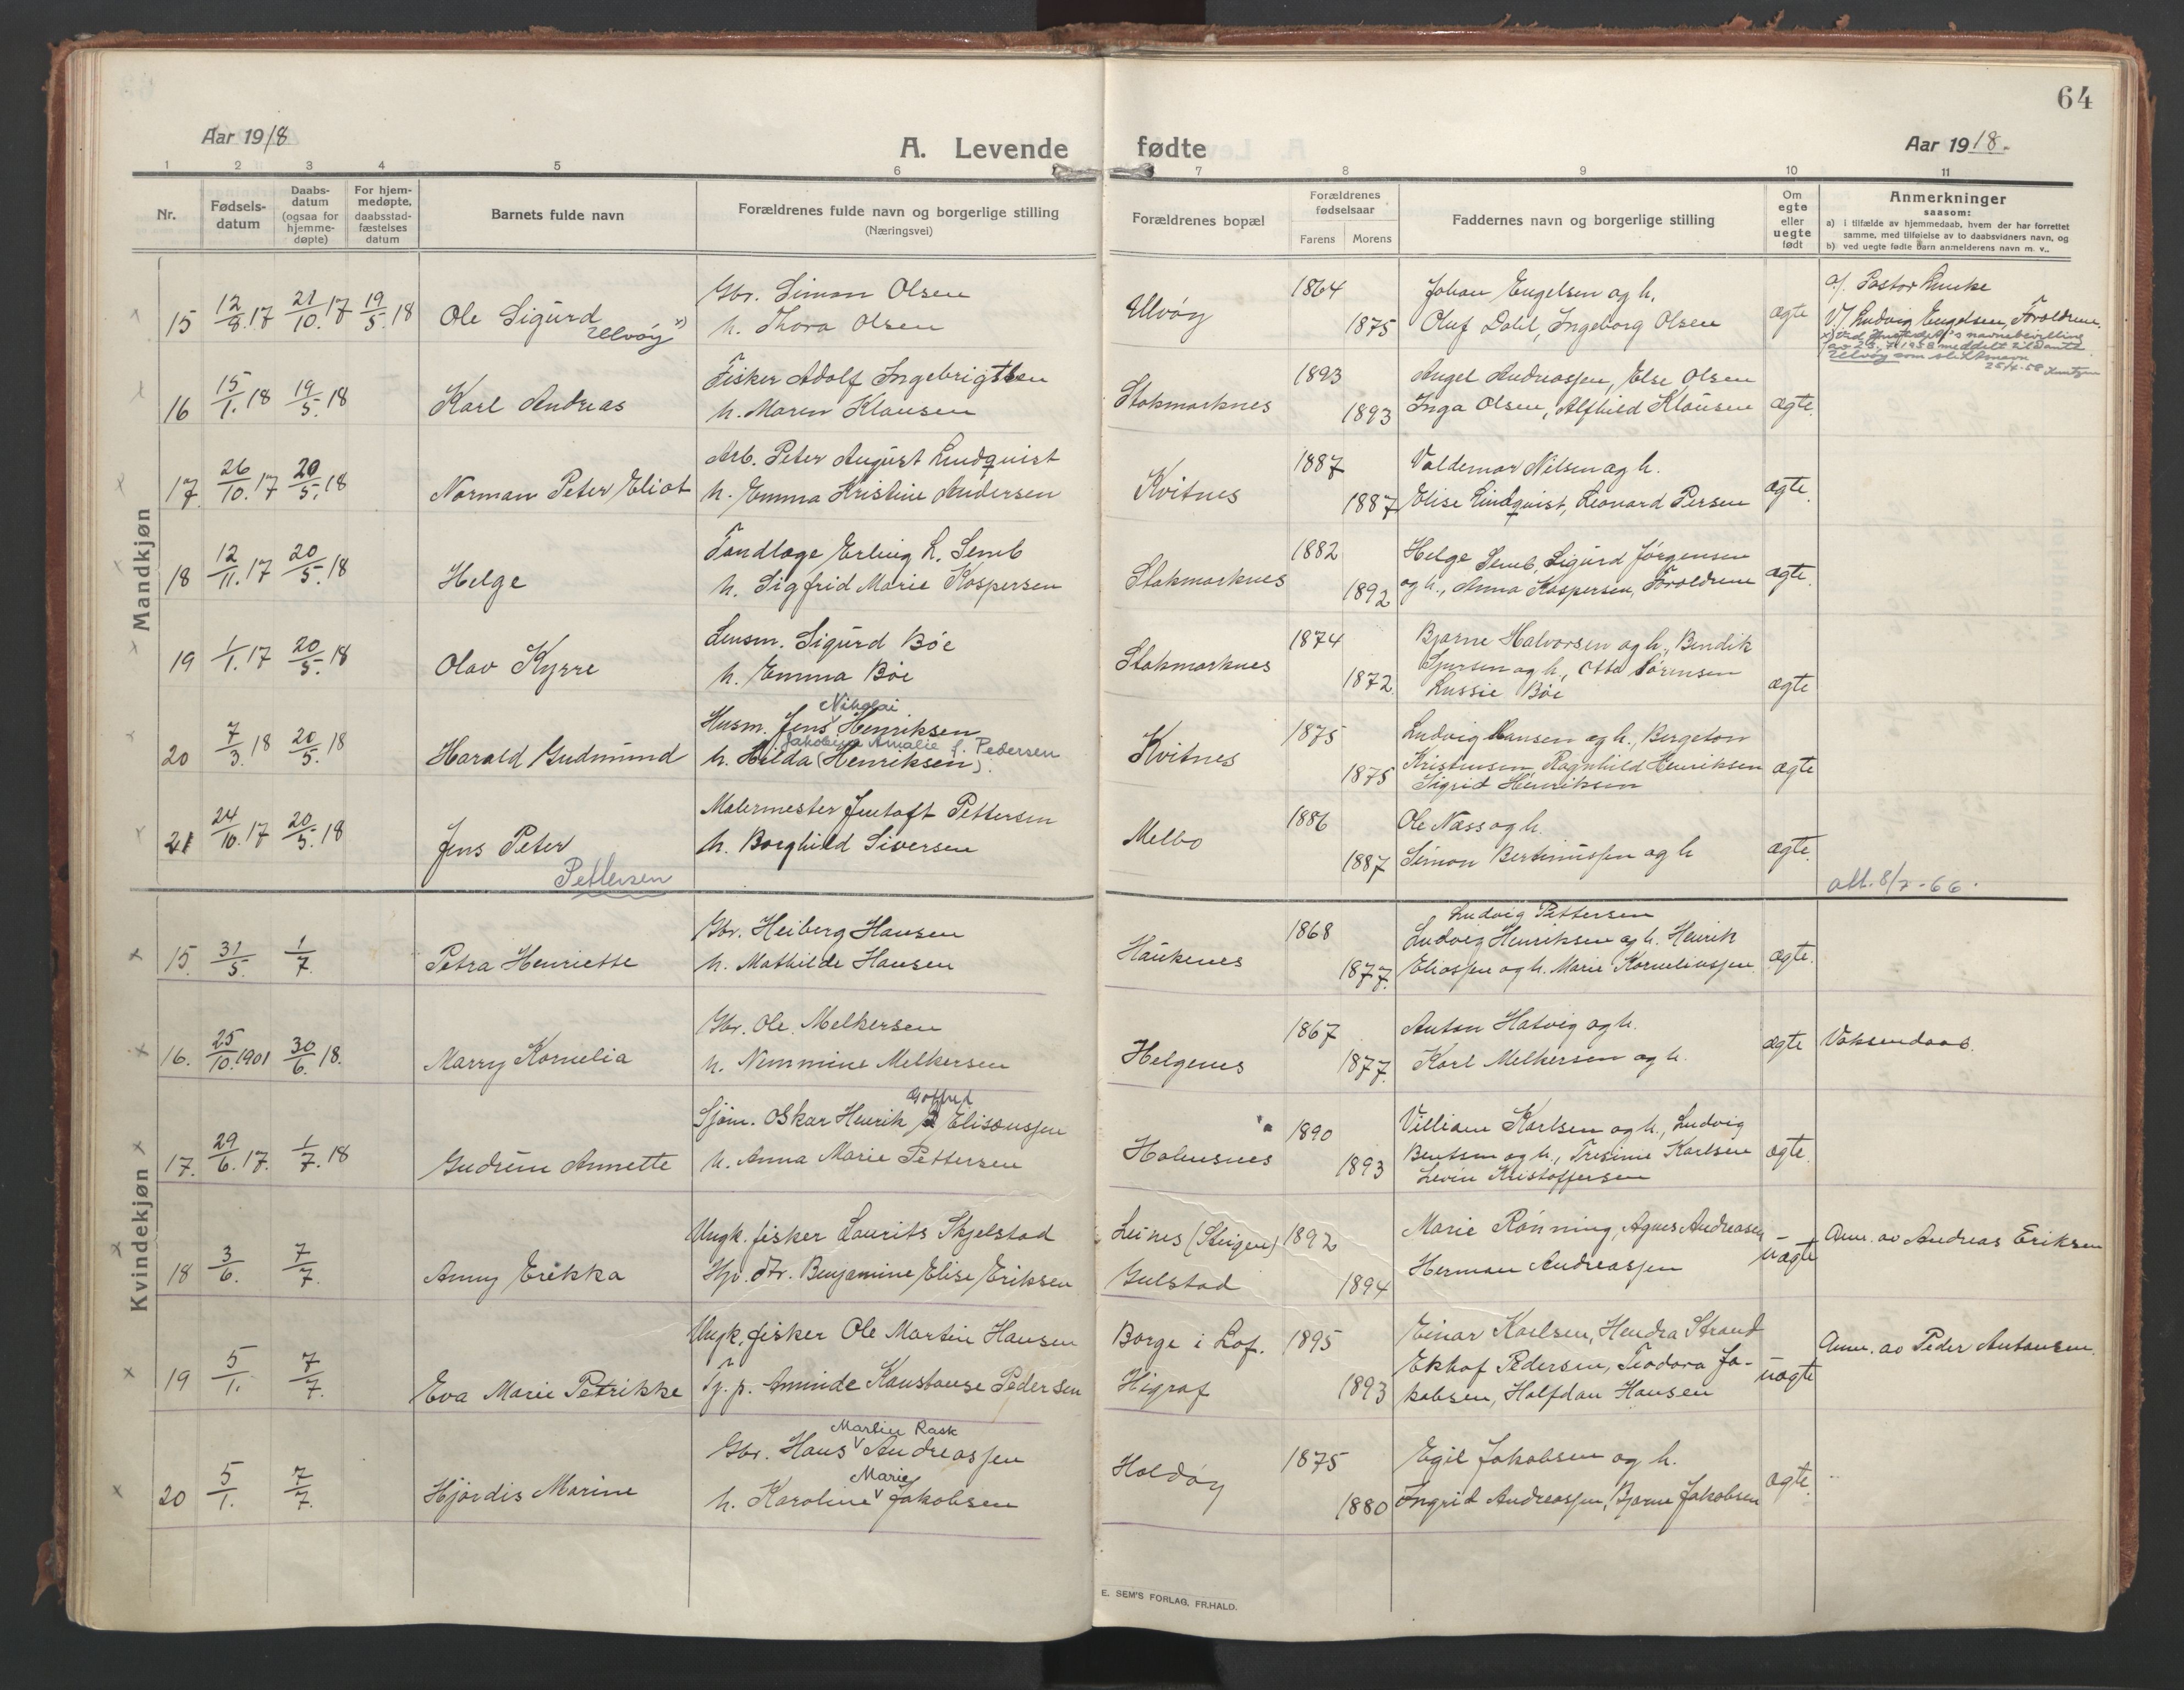 64
Aar 1918
A. Levende fødte
Aar 1918.
1 2 3 4 5 6 7 8 9 10 11
Nr.
Fødsels-
datum
Daabs-
datum
(ogsaa for
hjemme-
døpte)
For hjem-
medøpte,
daabsstad-
fæstelses
datum
Barnets fulde navn
Forældrenes fulde navn og borgerlige stilling
(Næringsvei)
Forældrenes bopæl
Forældrenes
fødselsaar
Farens Morens
Faddernes navn og borgerlige stilling
Om
egte
eller
uegte
født
Anmerkninger
saasom:
a) i tilfælde av hjemmedaab, hvem der har forrettet
samme, med tilføielse av to daabsvidners navn, og
b) ved uegte fødte barn anmelderens navn m. v..
Mandkjøn
15 12/8.17 21/10.17 19/5.18 Ole Sigurd Ulvöy x)
Gbr. Simon Olsen
h. Thora Olsen
Ulvöy 1864 1875
Johan Engelsen og h.
Oluf Dahl, Ingeborg Olsen
ægte
a/. Pastor
V/ Ludvig Engelsen, Forældrene.
Ulvöy som slektsnavn
16 15/1.18 19/5.18 Karl Andreas
Fisker Adolf Ingebrigtsen
h. Maren Klausen
Stokmarknes 1893 1893
Angel Andreassen, Else Olsen
Inga Olsen, Alfhild Klausen
ægte.
17. 26/10.17 20/5.18 Norman Peter Eliot
Arb. Peter August Lindquist
h. Emma Kristine Andersen
Kvitnes 1887 1887
Valdemar Nilsen og h.
Elise Lindquist, Leonard Persen
ægte.
18 12/11.17 20/5.18 Helge
Tandlæge Erling L. Semb
h. Sigfrid Marie Kaspersen
Stokmarknes 1882 1892
Helge Semb, Sigurd Jörgensen
og h., Anna Kaspersen, Forældrene
ægte.
19 1/1.17 20/5.18 Olav Kyrre
Lensm. Sigurd Böe
h. Emma Böe
Stokmarknes 1874 1872.
Bjarne Halvorsen og h., Bendik
og h., Otto Sörensen
Lussie Böe
ægte
20 7/3.18 20/5.18 Harald Gudmund
Nikolai
Husm. Jens Henriksen
Jakobine Amalie f. Pedersen
h. Hilda (Henriksen).
Kvitnes 1875 1875
Ludvig Hansen og h., Bergeton
Kristensen, Ragnhild Henriksen
Sigrid Henriksen
ægte
21 24/10.17 20/5.18 Jens Peter
Pettersen
Malermester Jentoft Pettersen
h. Borghild Siversen
Melbo 1886 1887
Ole Næss og h.
Simon Bertinussen og h
ægte.
att. 8/7-66.
Kvindekjøn
15. 31/5. 1/7. Petra Henriette
Gbr. Heiberg Hansen
h. Mathilde Hansen
Haukenes 1868 1877.
Ludvig Pettersen
Ludvig Henriksen og h. Henrik
Eliassen og h. Marie Korneliussen
ægte.
16. 25/10.1901 30/6.18. Marry Kornelia
Gbr. Ole Melkersen
h. Nimmine Melkersen
Helgenes 1867 1877.
Anton Hatvig og h.
Karl Melkersen og h.
ægte
Voksendaab.
17. 29/6.17. 1/7.18 Gudrun Annette
Sjöm. Oskar Henrik Elisæussen
h. Anna Marie Pettersen
Holmsnes 1890 1893
Villiam Karlsen og h., Ludvig
Bentsen og h., Tresine Karlsen
Levin Kristoffersen
ægte.
18 3/6. 7/7. Anny Erikka
Ungk. fisker Laurits Skjelstad
Hjv. dtr. Benjamine Elise Eriksen
Leines (Steigen)
Gulstad 1892 1894
Marie Rönning, Agnes Andreasen
Herman Andreassen
uægte
Anm. av Andreas Eriksen
19 5/1. 7/7. Eva Marie Petrikke
Ungk. fisker Ole Martin Hansen
Tj. p. Aminde Konstanse Pedersen
Borge i Lof.
Higraf 1895 1893
Einar Karlsen, Hendra Strand
Ekhof Pedersen, Teodora Ja-
kobsen, Halfdan Hansen
uægte
Anm. av Peder Antonsen.
20 5/1. 7/7. Hjördis Marine
Martin Rask
Gbr. Hans Andreassen
Marie
h. Karoline Jakobsen
Holdöy 1875 1880
Egil Jakobsen og h.
Ingrid Andreassen, Bjarne Jakobsen
ægte.
E. SEM'S FORLAG, FR.HALD.